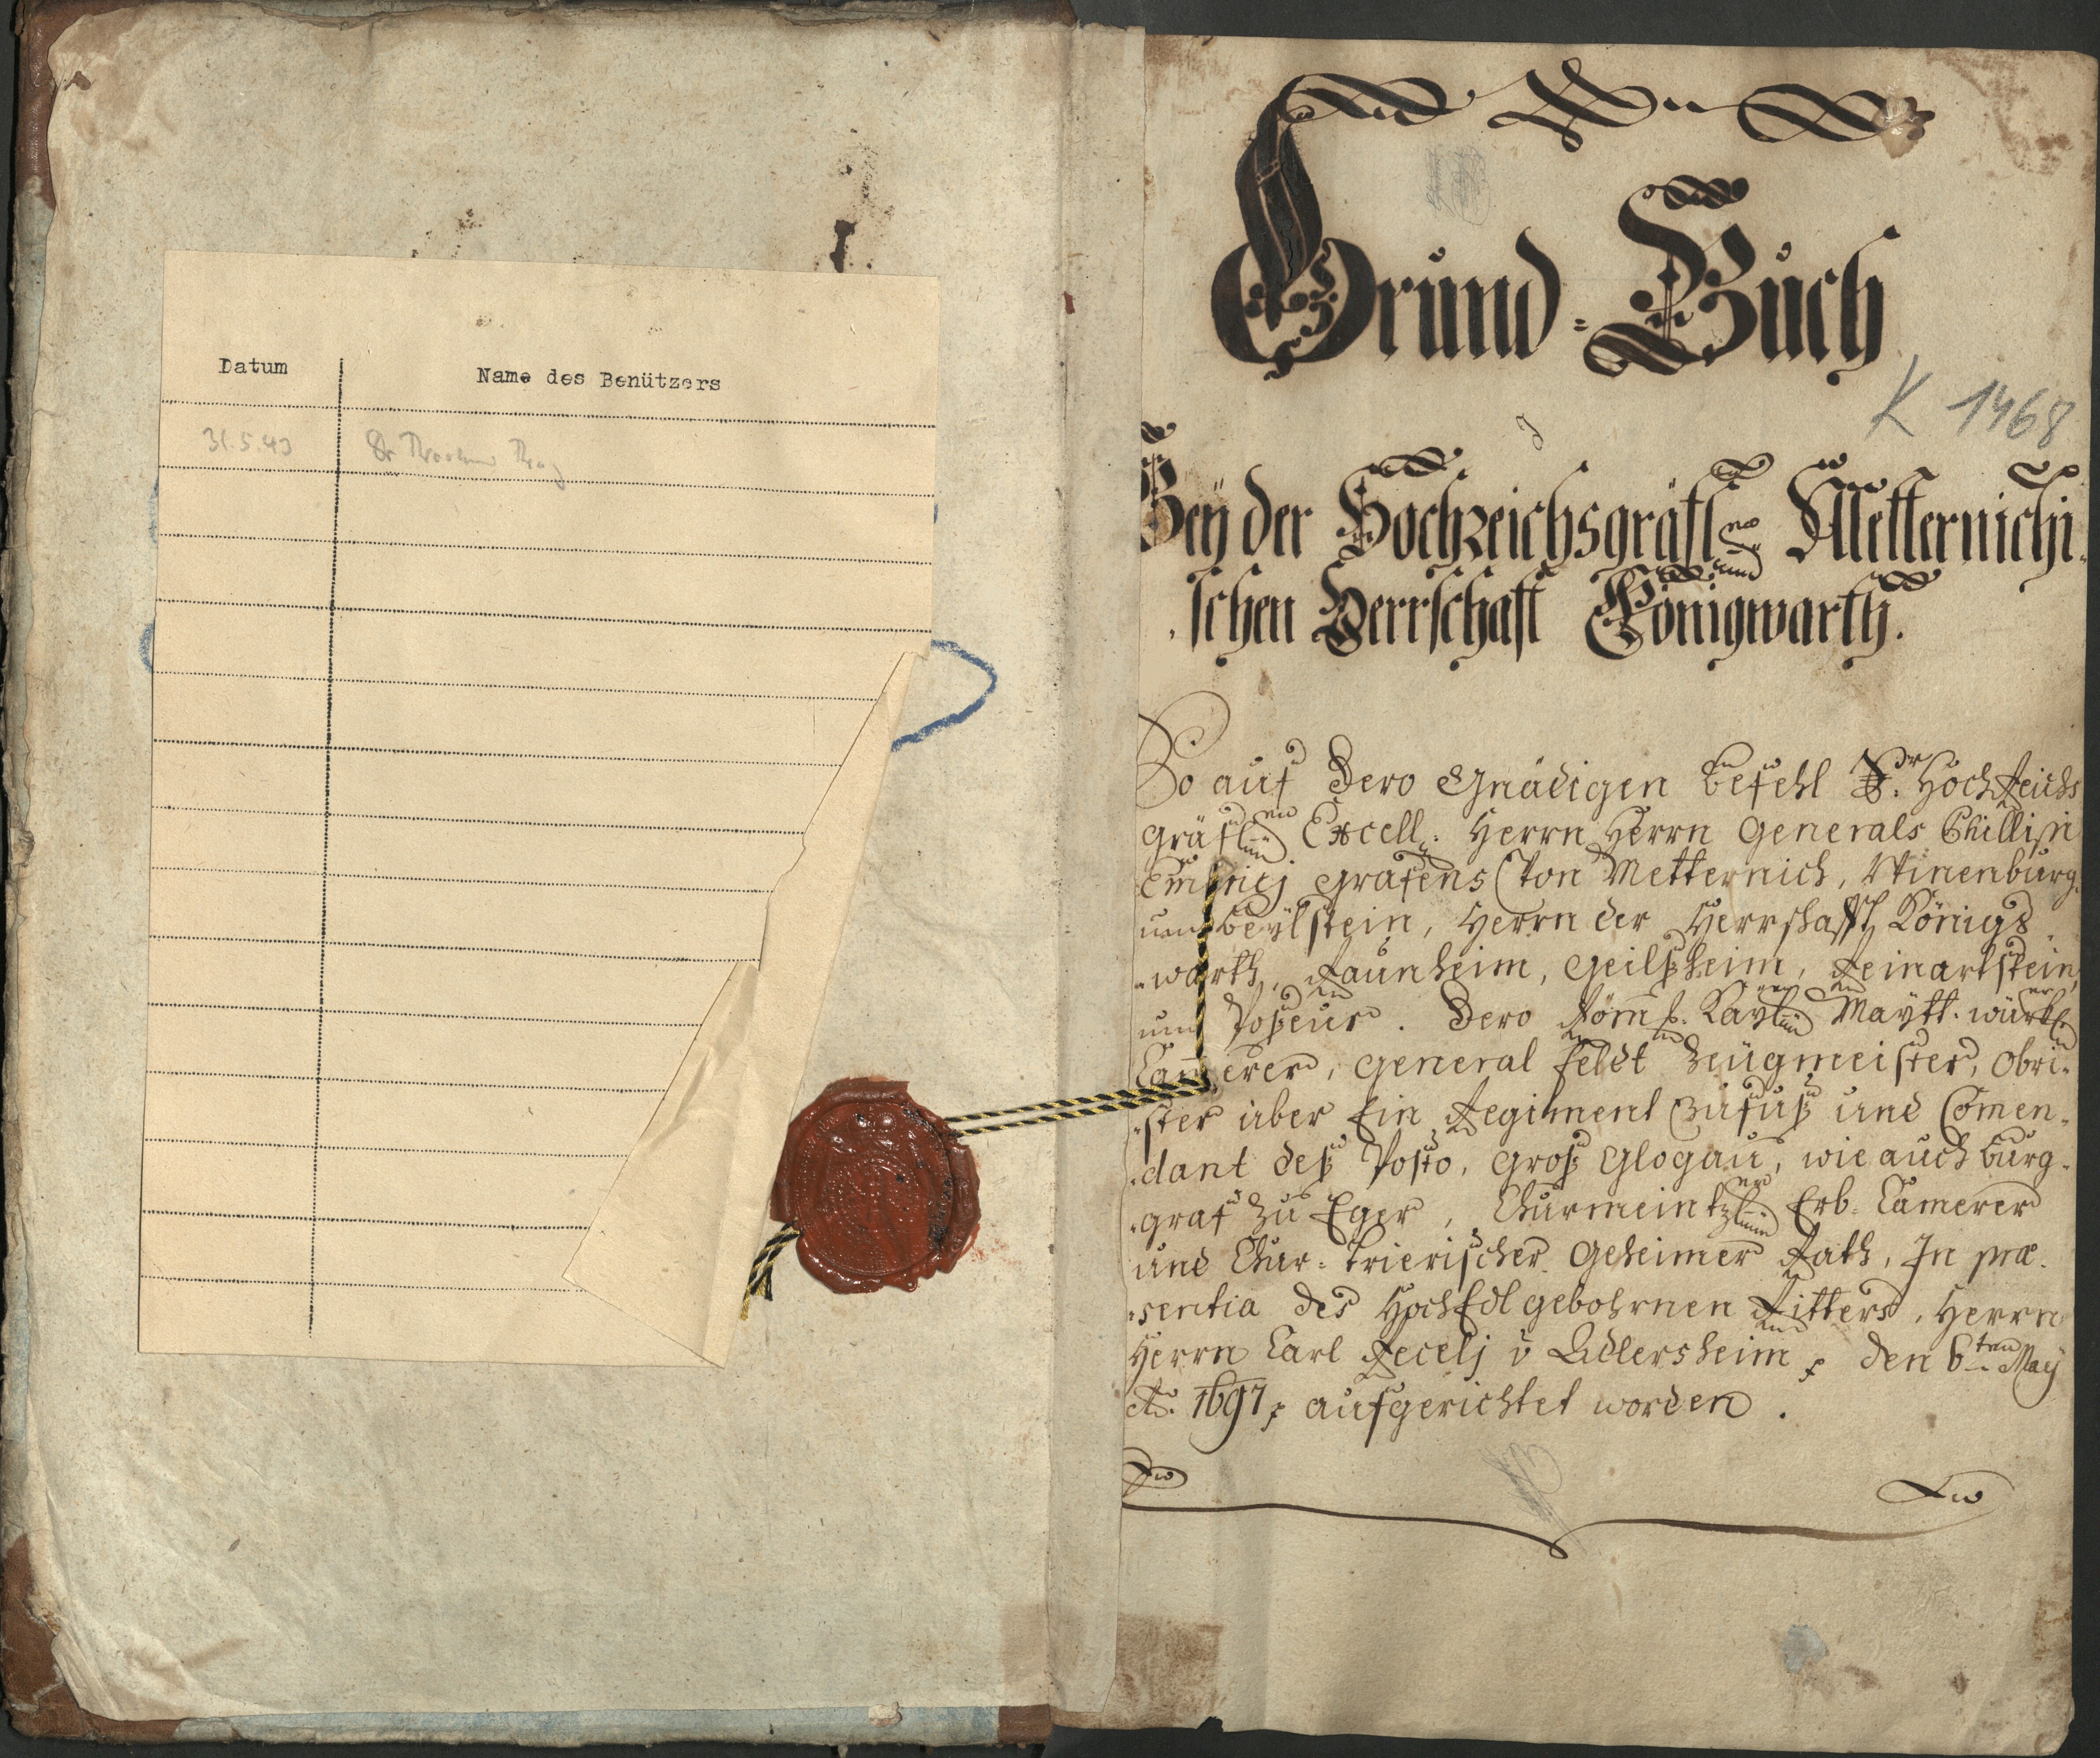 Datum Name des Benützers
31.5.43 Dr
Grund=Buch
K 1468
Beÿ der Hochreichsgräfl. Metternichi
schen Herrschaft Königwarth.
So auf Dero Gnädigen befehl Sr. Hoch Reichs
Gräfl. Excell. Herrn Herrn Generals Phillipi
Emerici Grafens Von Metternich, Winenburg
und Beÿlstein, Herrn der Herrschafft Königs
warth, Raunheim, Geilßheim, Reinartstein
und Poßeur. Dero Röm. Kaÿl. Maÿtt. würkl.
Camerer, General Feldt Zeügmeister, Obri-
ster über Ein Regiment zu fuß und Comen-
dant deß Posto, Groß Glogau, wie auch Burg-
graf zu Eger, Churmeintzl. Erb= Camerer
und Chur= Trierischer Geheimer Rath, In præ-
sentia des HochEdlgebohrnen Ritters, Herrn
Herrn Carl v Adlersheim, den 6ten Maÿ
Ao. 1697 aufgerichtet worden.